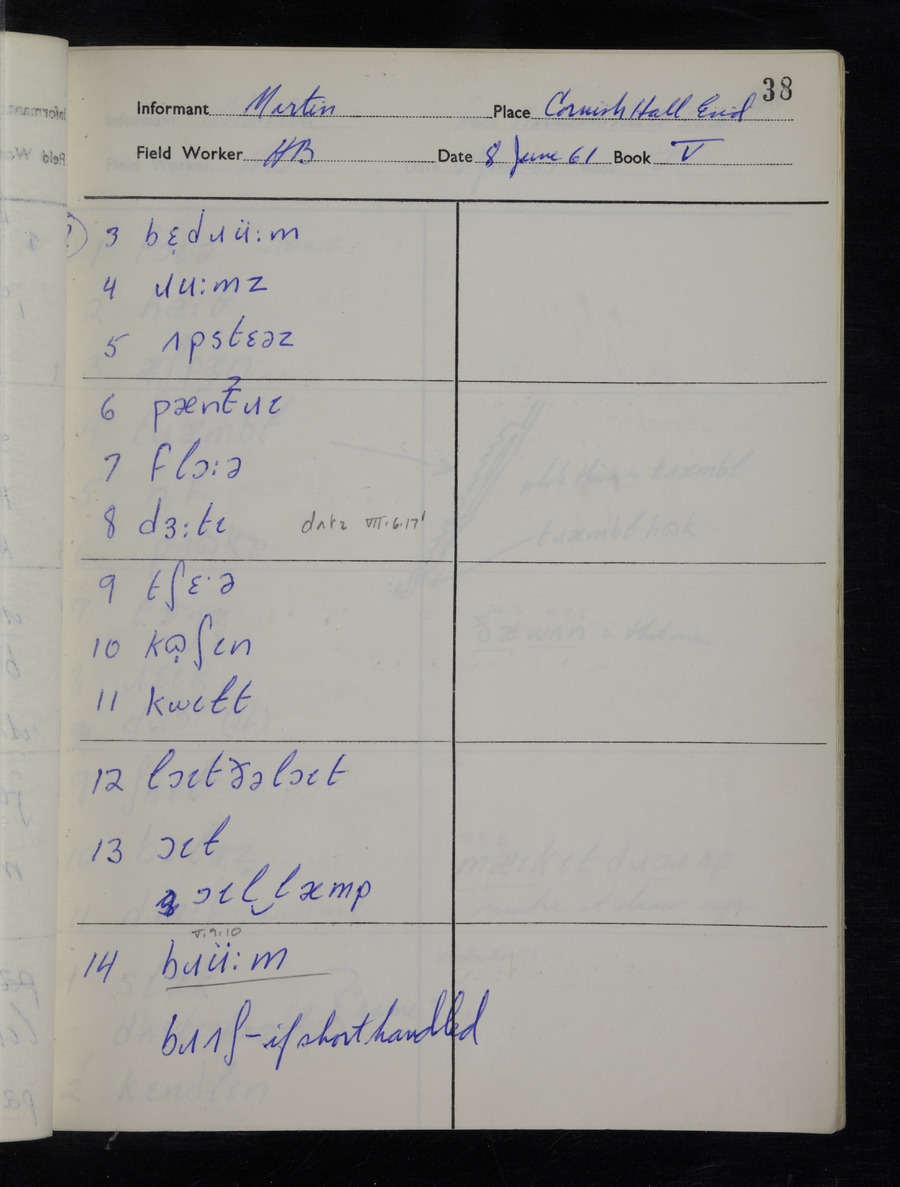 38
Informant Martin Place Cornish Hall End
Field Worker HB Date 8 June 61 Book V
3 bɛ̣dɹüː m
4 ɹuːmz
5 ʌpstɛəz
6 pæntʔɹɪ
7 flɔːə
8 dɜːtɪ dʌtɪ VII.6.17
9 tʃɛ·ə
10 kɒ̣ʃɪn
11 kwɪɫt
12 lɔɪtðəlɔɪt
13 ɔɪt
ɔɪl‿læmp
V.9.10
14 bɹüːm
bɹʌʃ - if short handled